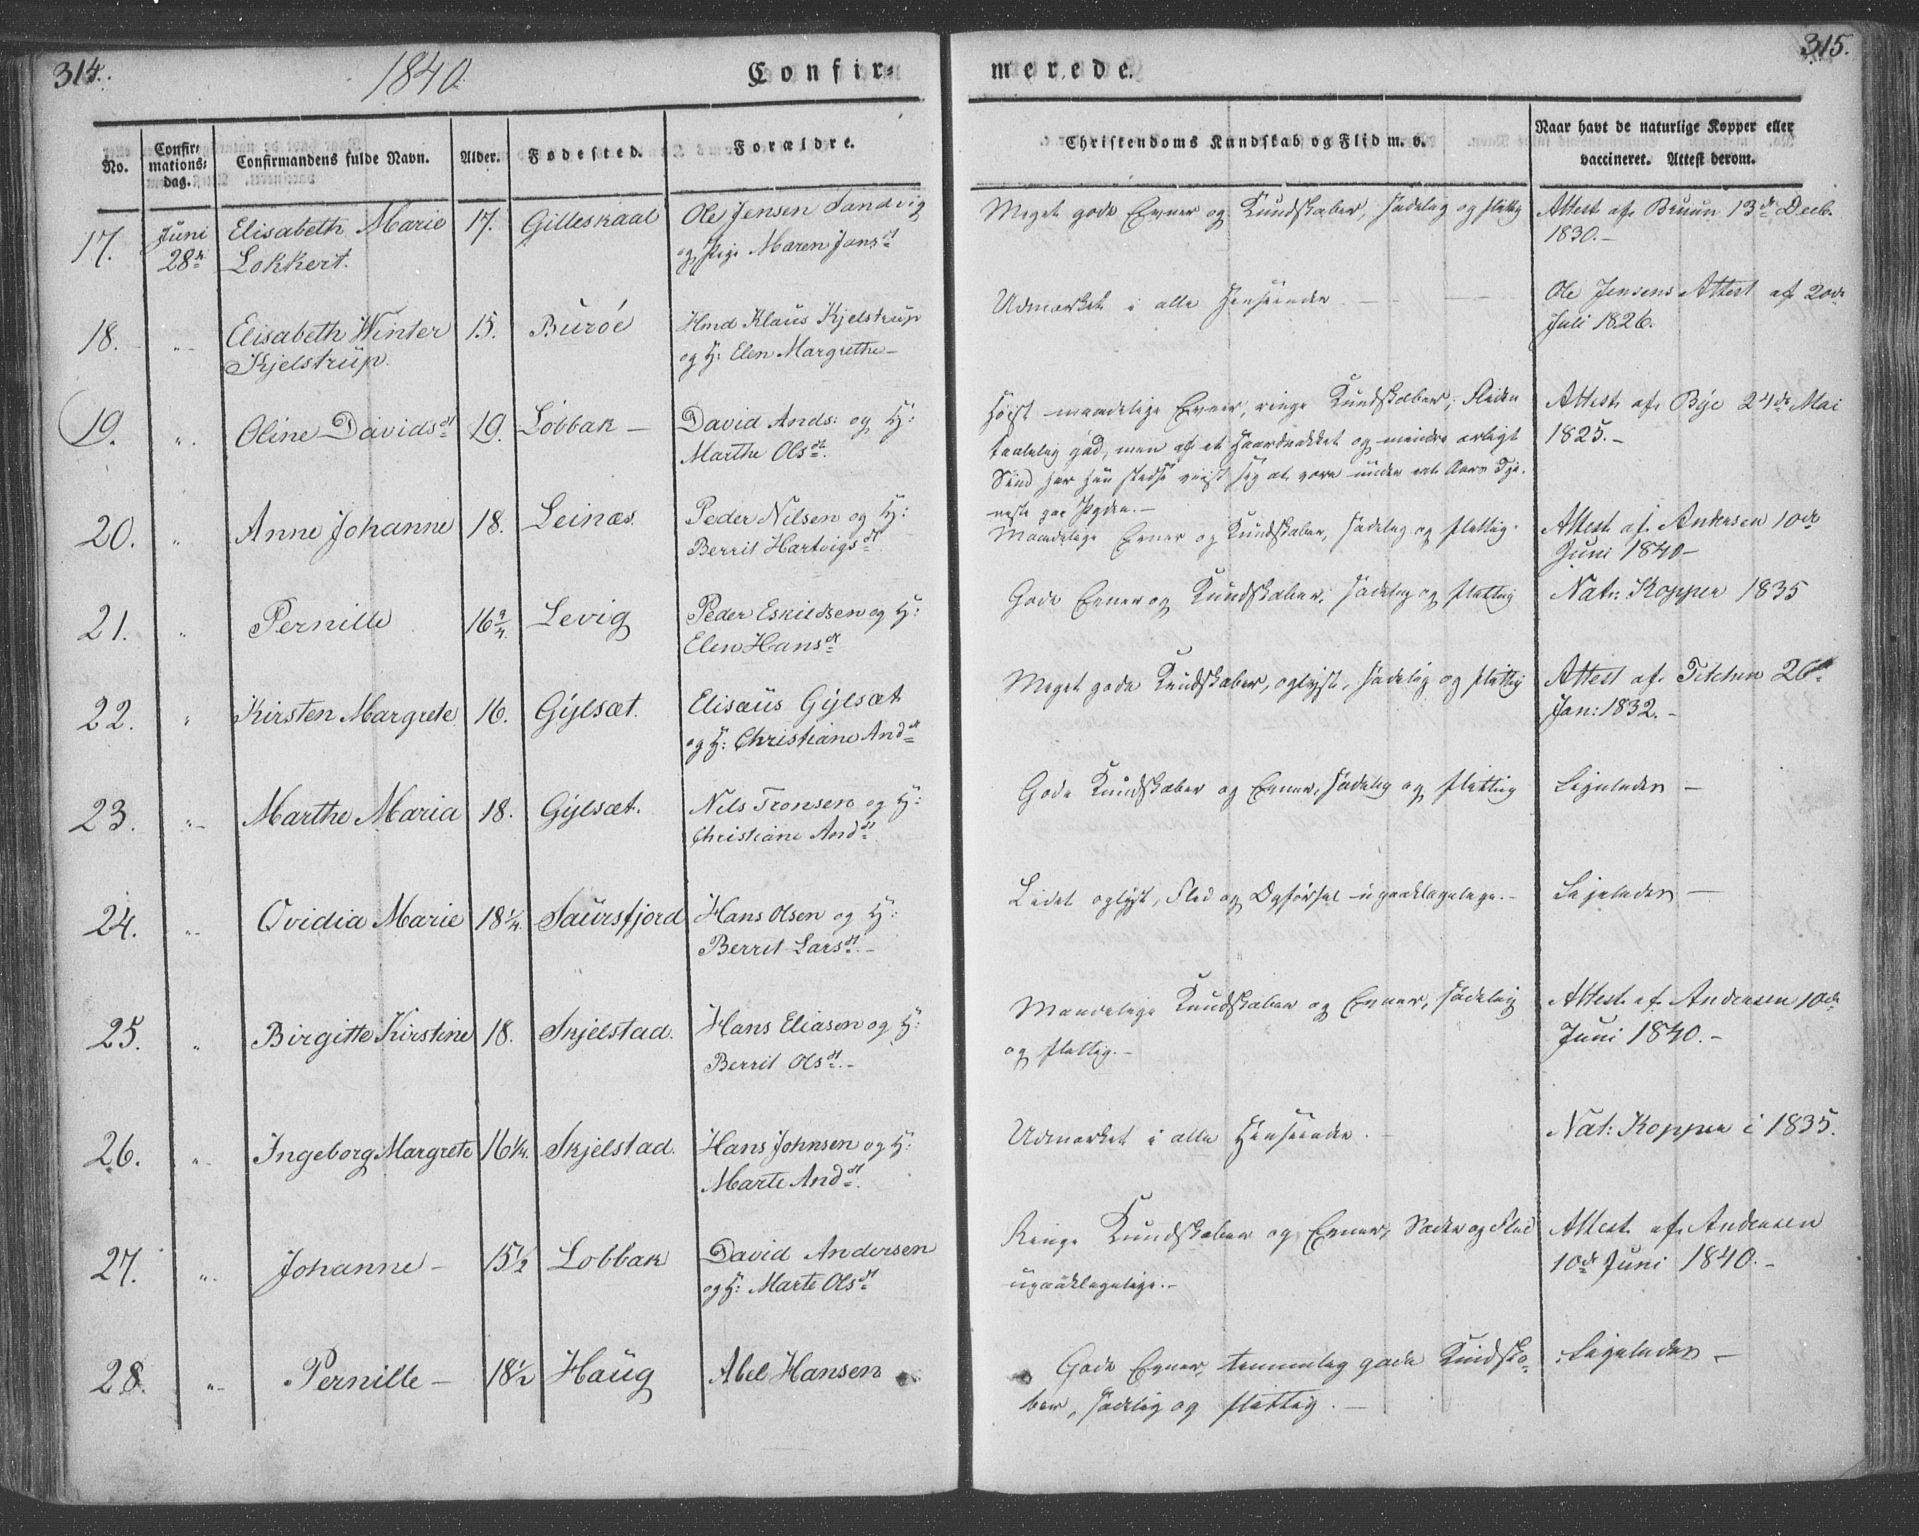 314.
1840
Confir=
merede.
315.
No.
Confir=
mations=
dag.
Confirmandens fulde Navn.
Alder.
Fødested.
Forældre.
Christendoms Kundskab og Flid m. v.
Naar havt de naturlige Kopper eller
vaccineret. Attest derom.
17.
Juni
28de
Elisabeth Marie
Lokkert.
17.
Gilleskaal
Ole Jensen Sandvig
og Pige Maren Jansdt
Meget gode Evner og Kundskaber, sædelig og flittig
Attest af Bruun 13de Decb.
1830.-
18.
"-
Elisabeth Winter
Kjelstrup.
15.
Burøe
Hmd Klaus Kjelstrup
og H: Elen Margrethe-
Udmærket i alle Henseender
Ole Jensens Attest af 20de
Juli 1826.
19.
".
Oline Davidsdt
19.
Løbbak -
David Ands: og H:
Marthe Olsdt.
Høist maadelige Evner, ringe Kundskaber; Fliden
taalelig god, men af et haardnakket og mindre ærligt
Sind har hun stedse viist sig at være under et Aars Tje-
neste paa
Attest af Bye 24de Mai
1825.-
20.
"
Anne Johanne
18.
Leinæs.
Peder Nilsen og H:
Berrit Hartvigsdt.
Maadelige Evner og Kundskaber, sædelig og flittig.
Attest af Andersen 10de
Juni 1840-
21.
"
Pernille
16 3/4.
Levig
Peder Eskildsen og H:
Elen Hansdt
Gode Evner og Kundskaber, sædelig og flittig
Nat: Kopper 1835
22.
"
Kirsten Margrete
16.
Gylsæt.
Elisæus Gylsæt
og H: Christiane Anddt
Meget gode Kundskaber, oplyst, sædelig og flittig
Attest af 26de
Jan: 1832.-
23.
"-
Marthe Maria
18.
Gylsæt.
Nils Tronsen og H:
Christiane Anddt.
Gode Kundskaber og Evner, sædelig og flittig
Ligeledes -
24.
"-
Ovidia Marie
18 1/4.
Saursfjord
Hans Olsen og H:
Berret Larsdt.-
Lidet oplyst, Flid og Opførsel upaaklagelige.-
Ligeledes -
25.
"
Birgitte Kirstine
18.
Skjelstad.
Hans Eliasen og H:
Berrit Olsdt.-
Maadelige Kundskaber og Evner, sædelig
og flittig.-
Attest af Andersen 10de
Juni 1840.-
26.
"-
Ingeborg Margrete
16 1/4.
Skjelstad.
Hans Johnsen og H:
Marte Anddt.
Udmærket i alle Henseender.
Nat: Kopper i 1835.
27.
"-
Johanne -
15 1/2
Lobbak
David Andersen
og H: Marte Olsdt
Ringe Kundskaber og Evner, Sæder og Flid
upaaklagelige.-
Attest af Andersen
10de Juni 1840.-
28.
"-
Pernille -
18 1/2
Haug
Abel Hansen
Gode Evner, temmelig gode Kundska-
ber, sædelig og flittig. -
Ligeledes -